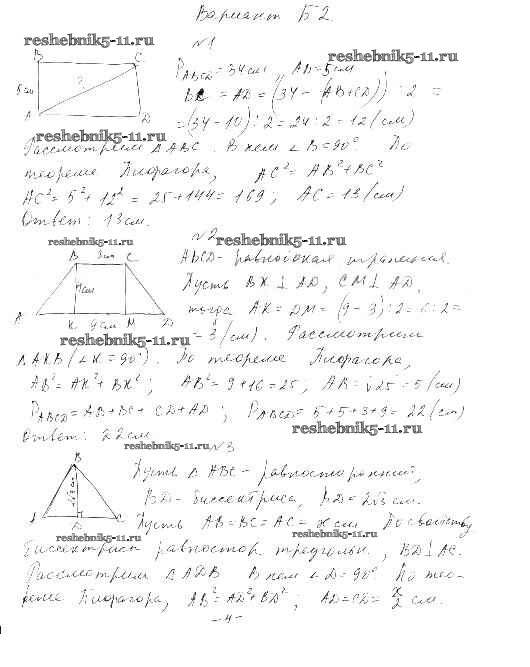 Вариант Б2.
reshebnik5-11.ru
№1
reshebnik5-11.ru
B C
5 см ?
A D
P_ABCD = 34 см, AB = 5 см
BC = AD = (34 - (AB+CD)) : 2 =
= (34 - 10) : 2 = 24 : 2 = 12 (см)
reshebnik5-11.ru
Рассмотрим △ABC. В нем ∠B = 90° По
теореме Пифагора, AC² = AB² + BC²
AC² = 5² + 12² = 25 + 144 = 169; AC = 13 (см)
Ответ: 13 см.
reshebnik5-11.ru
№2
reshebnik5-11.ru
B 3 см C
4 см
A K 9 см M D
ABCD - равнобокая трапеция.
Пусть BK ⊥ AD, CM ⊥ AD,
тогда AK = DM = (9 - 3) : 2 = 6 : 2 =
reshebnik5-11.ru
= 3 (см). Рассмотрим
△AKB (∠K = 90°). По теореме Пифагора,
AB² = AK² + BK²; AB² = 9 + 16 = 25, AB = √25 = 5 (см)
P_ABCD = AB + BC + CD + AD; P_ABCD = 5 + 5 + 3 + 9 = 22 (см)
reshebnik5-11.ru
Ответ: 22 см
reshebnik5-11.ru
№3
B
2√3 см
D C
Пусть △ABC - равносторонний,
BD - биссектриса, BD = 2√3 см.
Пусть AB = BC = AC = x см По свойству
reshebnik5-11.ru
reshebnik5-11.ru
биссектрисы равностор. треугольн., BD ⊥ AC.
Рассмотрим △ADB В нем ∠D = 90° По тео-
реме Пифагора, AB² = AD² + BD²; AD = CD = x/2 см.
reshebnik5-11.ru
- 4 -